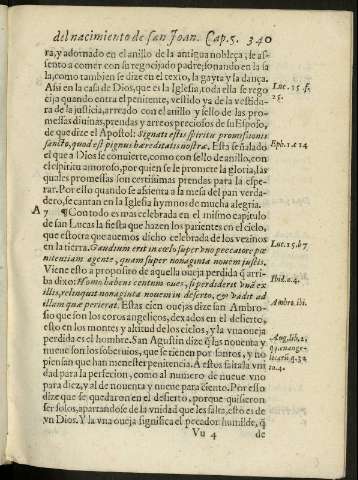 del nacimiento de san Joan. Cap. 5. 340
ra, y adornado en el anillo de la antigua nobleça, le as-
sento a comer con su regocijado padre, sonando en la sa
la, como tambien se dize en el texto, la gayta y la dança.
Assi en la casa de Dios, que es la Iglesia, toda ella se rego
zija quando entra el penitente, vestido ya de la vestidu-
ra de la justicia, arreado con el anillo y sello de las pro-
messas diuinas, prendas y arreos preciosos de su Esposo,
de que dize el Apostol: Signati estis spiritu promissionis
sancto, quod est pignus hæreditatis nostræ. Esta señalado
el que a Dios se conuierte, como con sello de anillo, con
el espiritu amoroso, por quien se le promete la gloria, las
quales promessas son certissimas prendas para la espe-
rar. Por esso quando se assienta a la mesa del pan verda-
dero, se cantan en la Iglesia hymnos de mucha alegria.
A 7 ¶ Con todo es mas celebrada en el mismo capitulo
de san Lucas la fiesta que hazen los parientes en el cielo,
que estotra que auemos dicho celebrada de los vezinos
en la tierra. Gaudium erit in cælo super vno peccatore pæ
nitentiam agente, quam super nonaginta nouem iustis.
Viene esto a proposito de aquella oueja perdida q̃ arri-
ba dixo: Homo habens centum oues, si perdiderit vnã ex
illis, relinquit nonaginta nouem in deserto, & vadit ad
illam quæ perierat. Estas cien ouejas dize san Ambro-
sio que son los coros angelicos, dexados en el desierto,
esto en los montes y altitud de los cielos, y la vna oueja
perdida es el hombre. San Agustin dize q̃ las nouenta y
nueue son los soberuios, que se tienen por santos, y no
piensan que han menester penitencia. A estos falta la vni
dad para la perfecion, como al numero de nueue vno
para diez, y al de nouenta y nueue para ciento. Por esso
dize que se quedaron en el desierto, porque quisieron
ser solos, apartandose de la vnidad que les falta, esto es de
vn Dios. Y la vna oueja significa el pecador humilde, q̃
Vu 4 de
Luc. 15 f.
25.
Eph. 1 c 14
Luc. 15. b 7
Ibid. a. 4.
Ambro. ibi.
Aug. lib. 2.